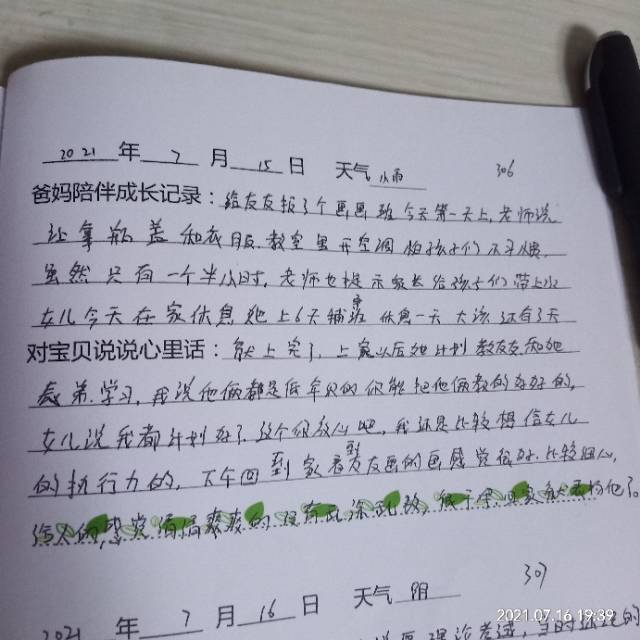 2021 年 7 月 15 日 天气 小雨 306
爸妈陪伴成长记录：给友友报了个画画班今天第一天上,老师说
还拿瓶盖和衣服.教室里开空调怕孩子们不习惯.
虽然只有一个半小时,老师也提示家长给孩子们带上水
女儿今天在家休息她上6天辅导班休息一天大该还有3天
对宝贝说说心里话：就上完了,上完以后她计划教友友和她
表弟学习,我说他俩都是低年级的你能把他俩教的好好的,
女儿说我都计划好了,这个你放心吧,我还是比较相信女儿
的执行力的,下午回到家看到友友画的画感觉很好.比较细心,
给人的感觉清清爽爽的
2021 年 7 月 16 日 天气 阴 307
2021.07.16 19:39